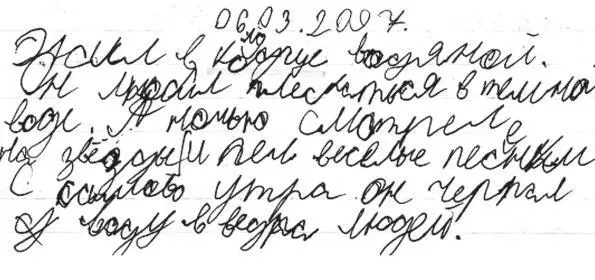 06.03.2007.
Жил в колодце водяной.
Он любил плескаться в темна
воде. А ночью смотрел
на звёзды и пел веселые песенки
С самого утра он черпал
воду в ведра людей.